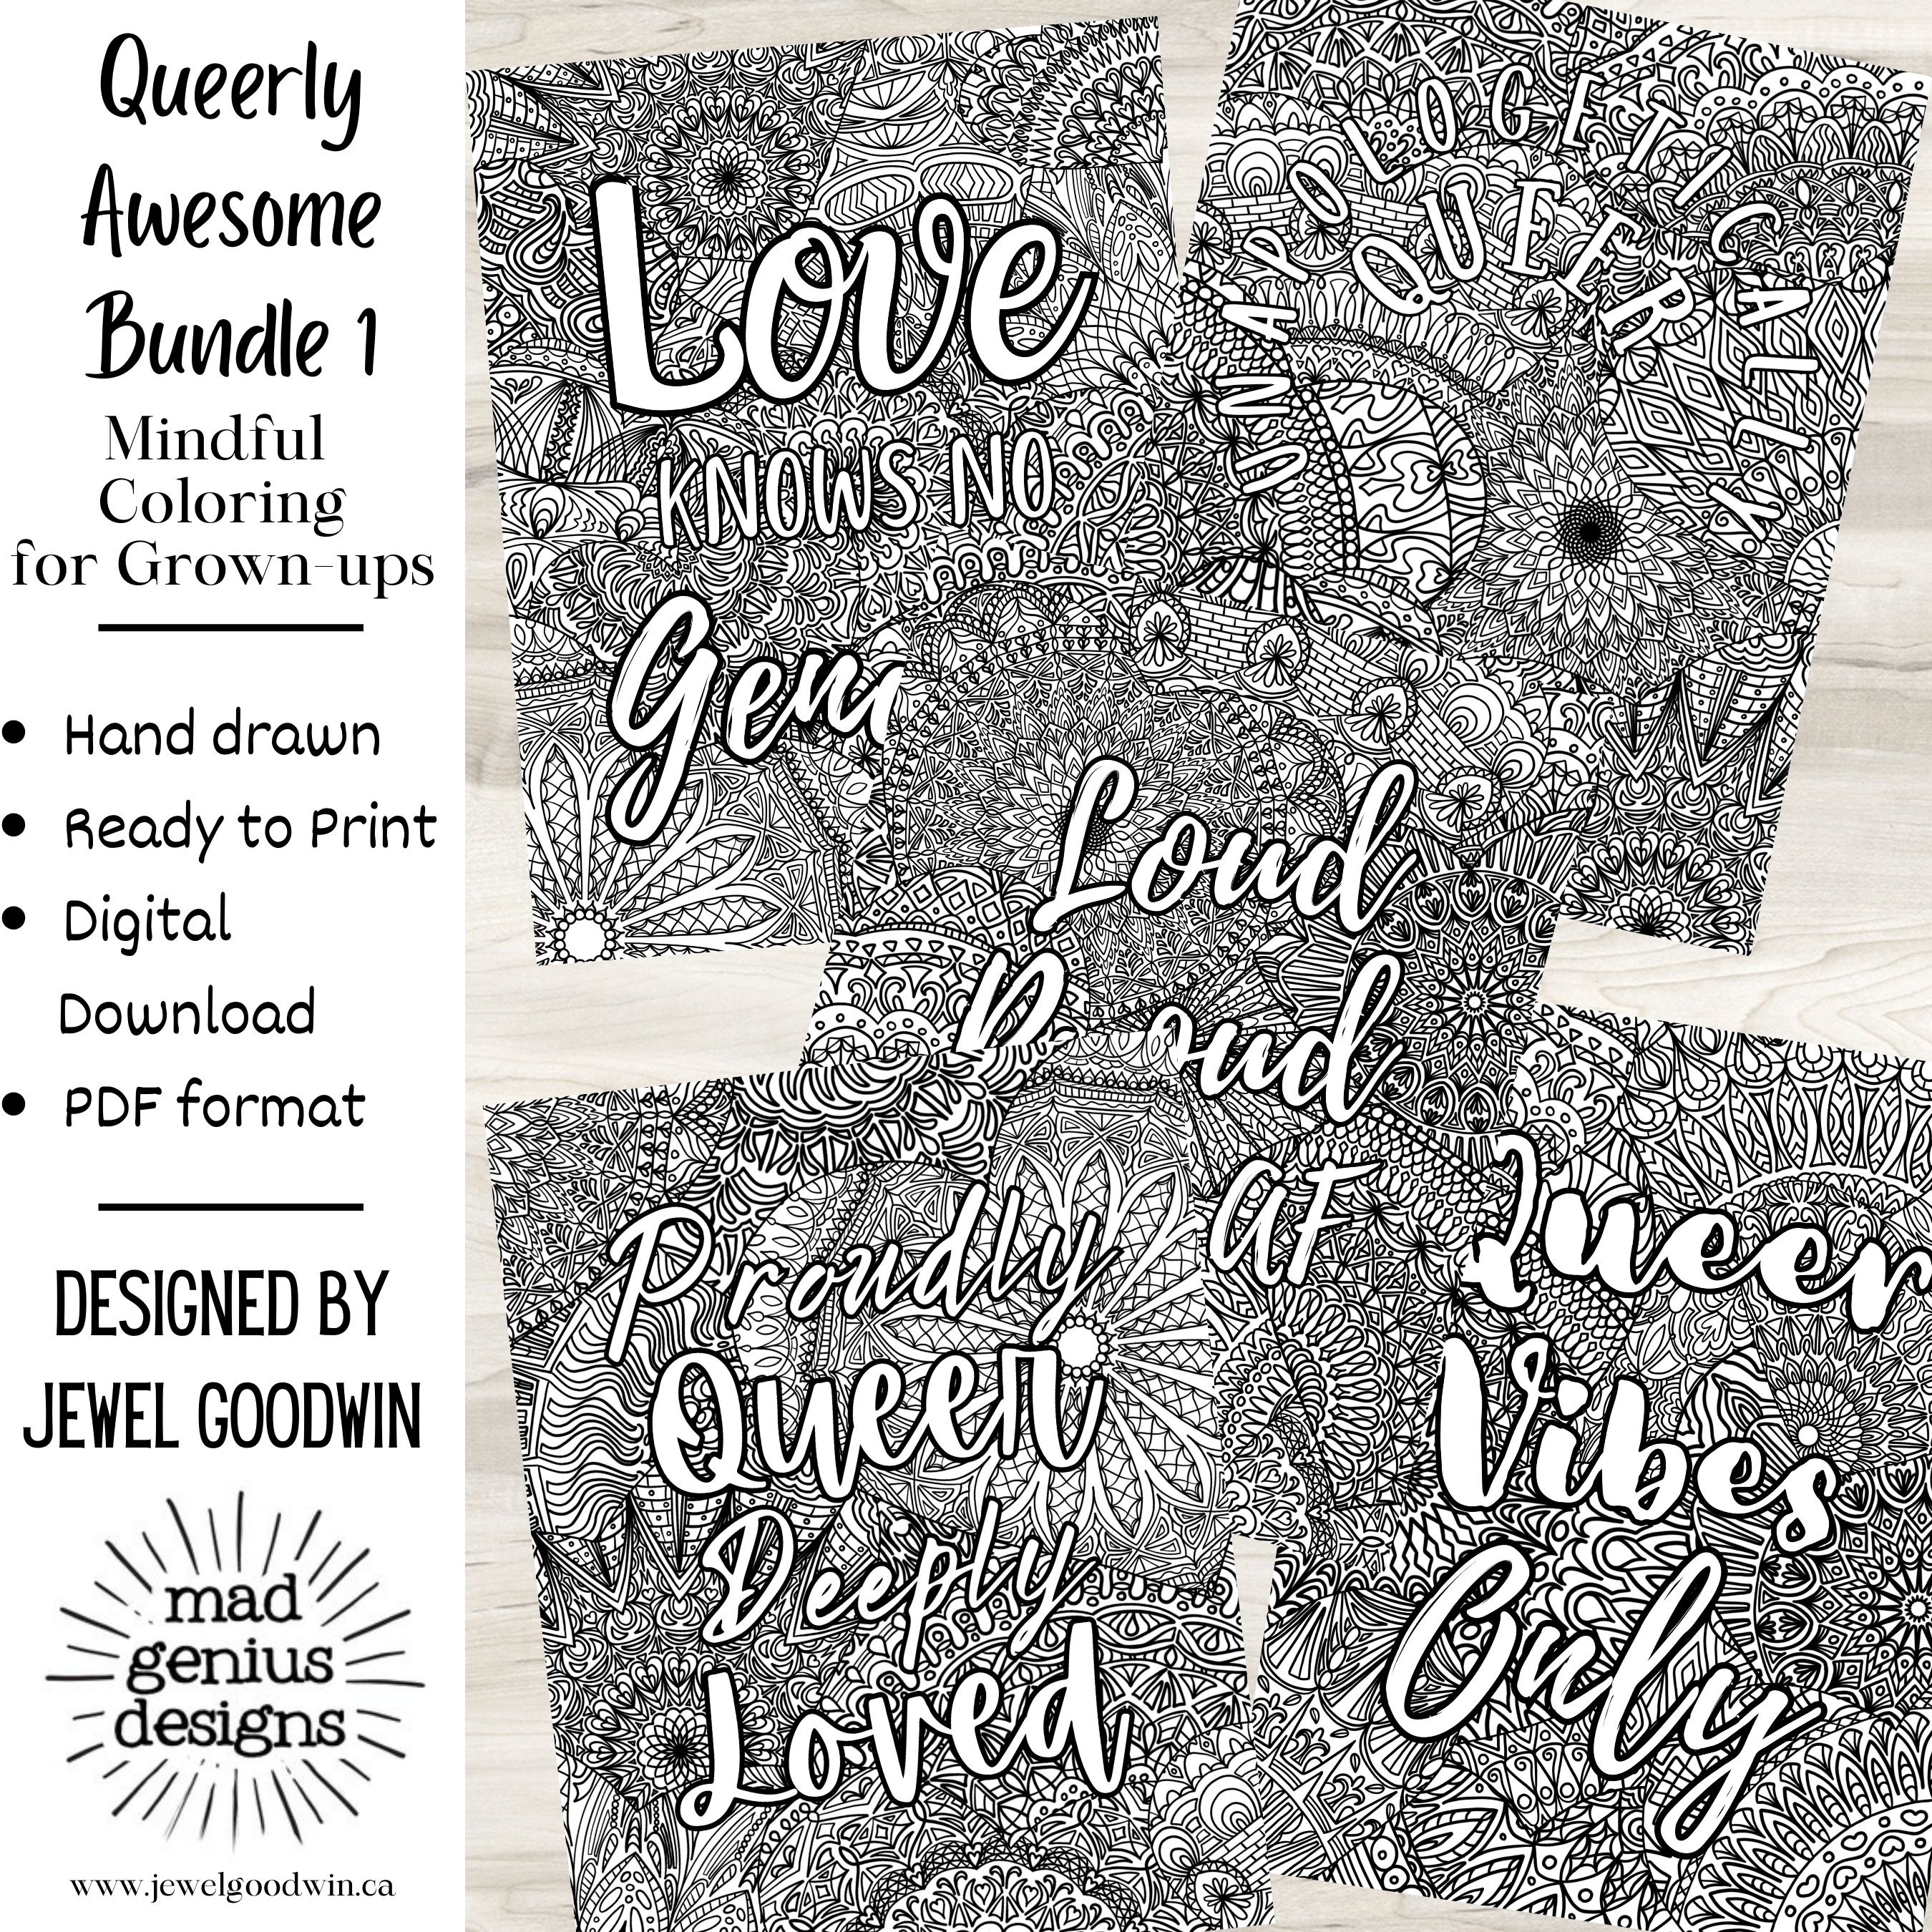 Queerly
Awesome
Bundle 1
Mindful
Coloring
for Grown-ups
• Hand drawn
• Ready to Print
• Digital
Download
• PDF format
DESIGNED BY
JEWEL GOODWIN
mad
genius
designs
www.jewelgoodwin.ca
Love
KNOWS NO
Gen
UNAPOLOGETICALLY
QUEER
Loud
Proud
AF
Proudly
Queer
Deeply
Loved
Queer
Vibes
Only